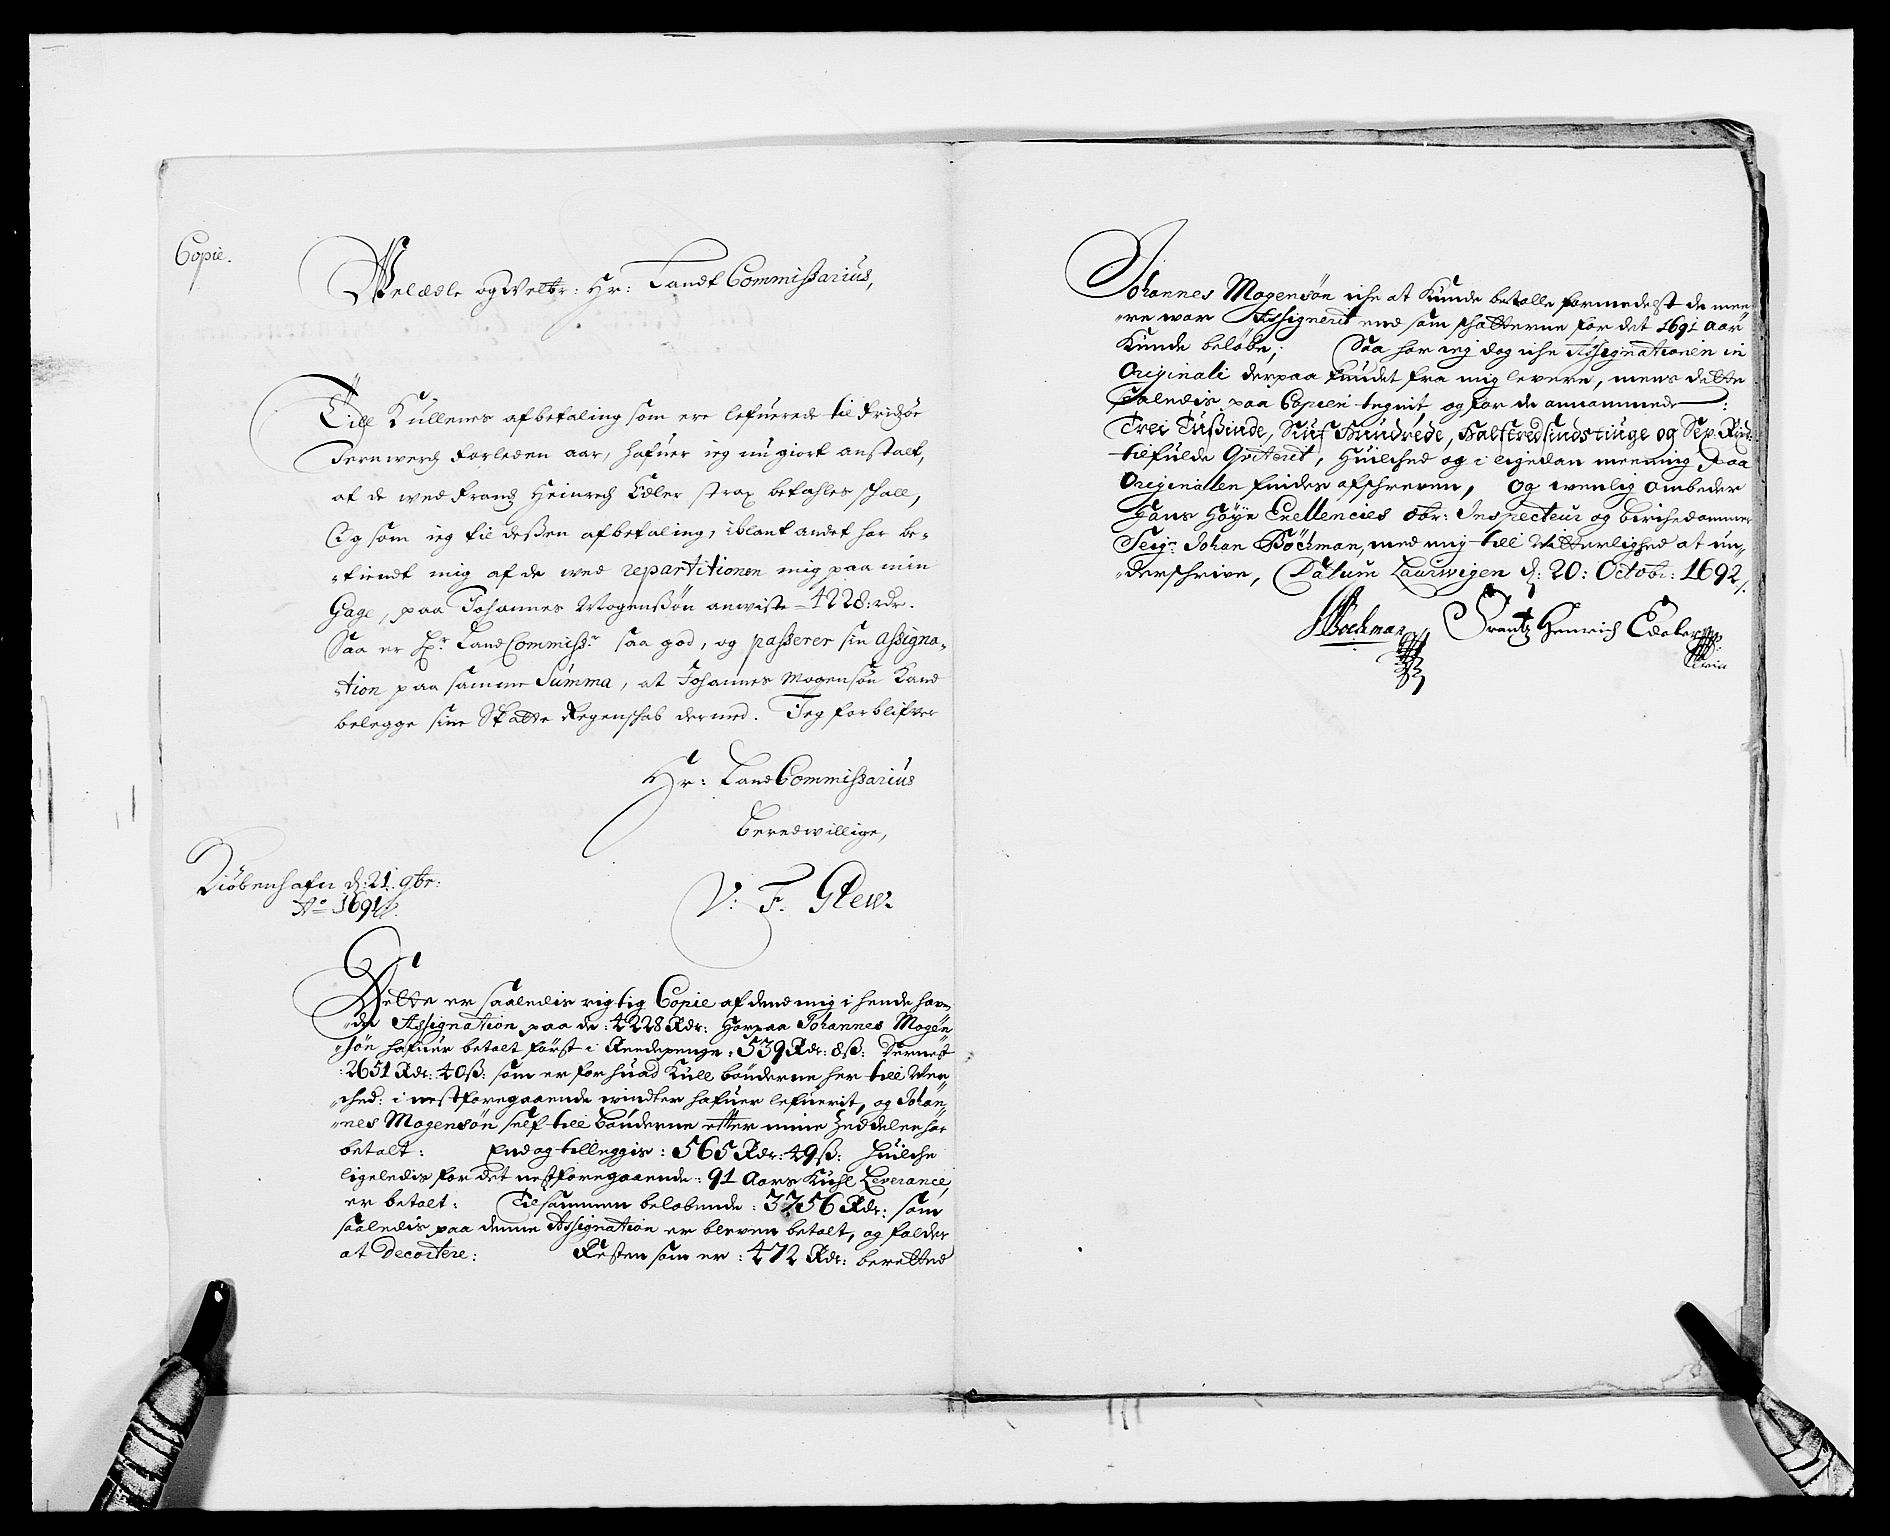 Copie.
Velædle og Velbr: Hr: Landt Commissarius,
Till Kullenes afbetaling som ere lefuerede til Fridzøe
Jernwerch forleden aar, hafuer ieg nu giort anstalt,
at de wed Frandz Heinrich Edeler strax betahles schall,
Og som ieg til dessen afbetaling, iblant andet har be-
-tient mig af de wed repartitionen mig paa min
Gage, paa Johannes Mogenssøn anwiste - 4228: rdr.
Saa er Hr. Land Commiss.r saa god, og passerer sin Assigna-
-tion paa samme Summa, at Johannes Mogensøn Kand
belegge sine Skatte Regenschab dermed. Jeg forblifver
Hr: Land Commissarius
beredwillige,
Kiøbenhafn d: 21. 9br:
A.o 1691
V: F. Glew.
Dette er saaledis rigtig Copie af dend mig i hende hafuen-
-de Assignation paa de: 4228 Rdr: Horpaa Johannes Mogen-
-søn hafuer betalt først i Reedepenge: 539 Rdr: 8ß: Dernest
: 2651 Rdr: 40ß: som er for huad Kull bønderne her till Wer-
-ched: i nestforegaaende windter hafuer lefuerit, og Johan-
-nes Mogensøn self till bønderne efter mine Zeddeler har
betalt: End og tilleggis: 565 Rdr: 49ß: Huilche
ligeledis for det nestforegaaende: 91 Aars Kuhl Leverance,
er betalt: Tilsammen beløbende: 3756 Rdr: som
saaledis paa denne Assignation er bleven betalt, og falder
at Decortere: Resten som er: 472 Rdr: berettned
Johannes Mogensøn iche at Kunde betalle formedelst de mee-
-re war Assigneret end som schatterne for det 1691 aar
Kunde beløbe; Saa har ieg dog iche Assignationen in
Originali derpaa kundet fra mig levere, mens dette
Saaledis paa Copien tegnit og for de annammede:
Trei Tusinde, Siuf Hundrede, Halftredsindstiuge og Sex Rixdr:
tilfulde Qviterit, Huilched og i ligedan meening paa
Originallen findes afschreven, og wenlig ombeder
Hans Høye Exellencies Obr: Inspecteur og birchedommer
Seig.r Johan Böchman, med mig till Vitterlighed at un-
-derschrive, Datum Laurwigen d: 20: Octobr: 1692/.
JBöchman Frantz Henrich Edeler